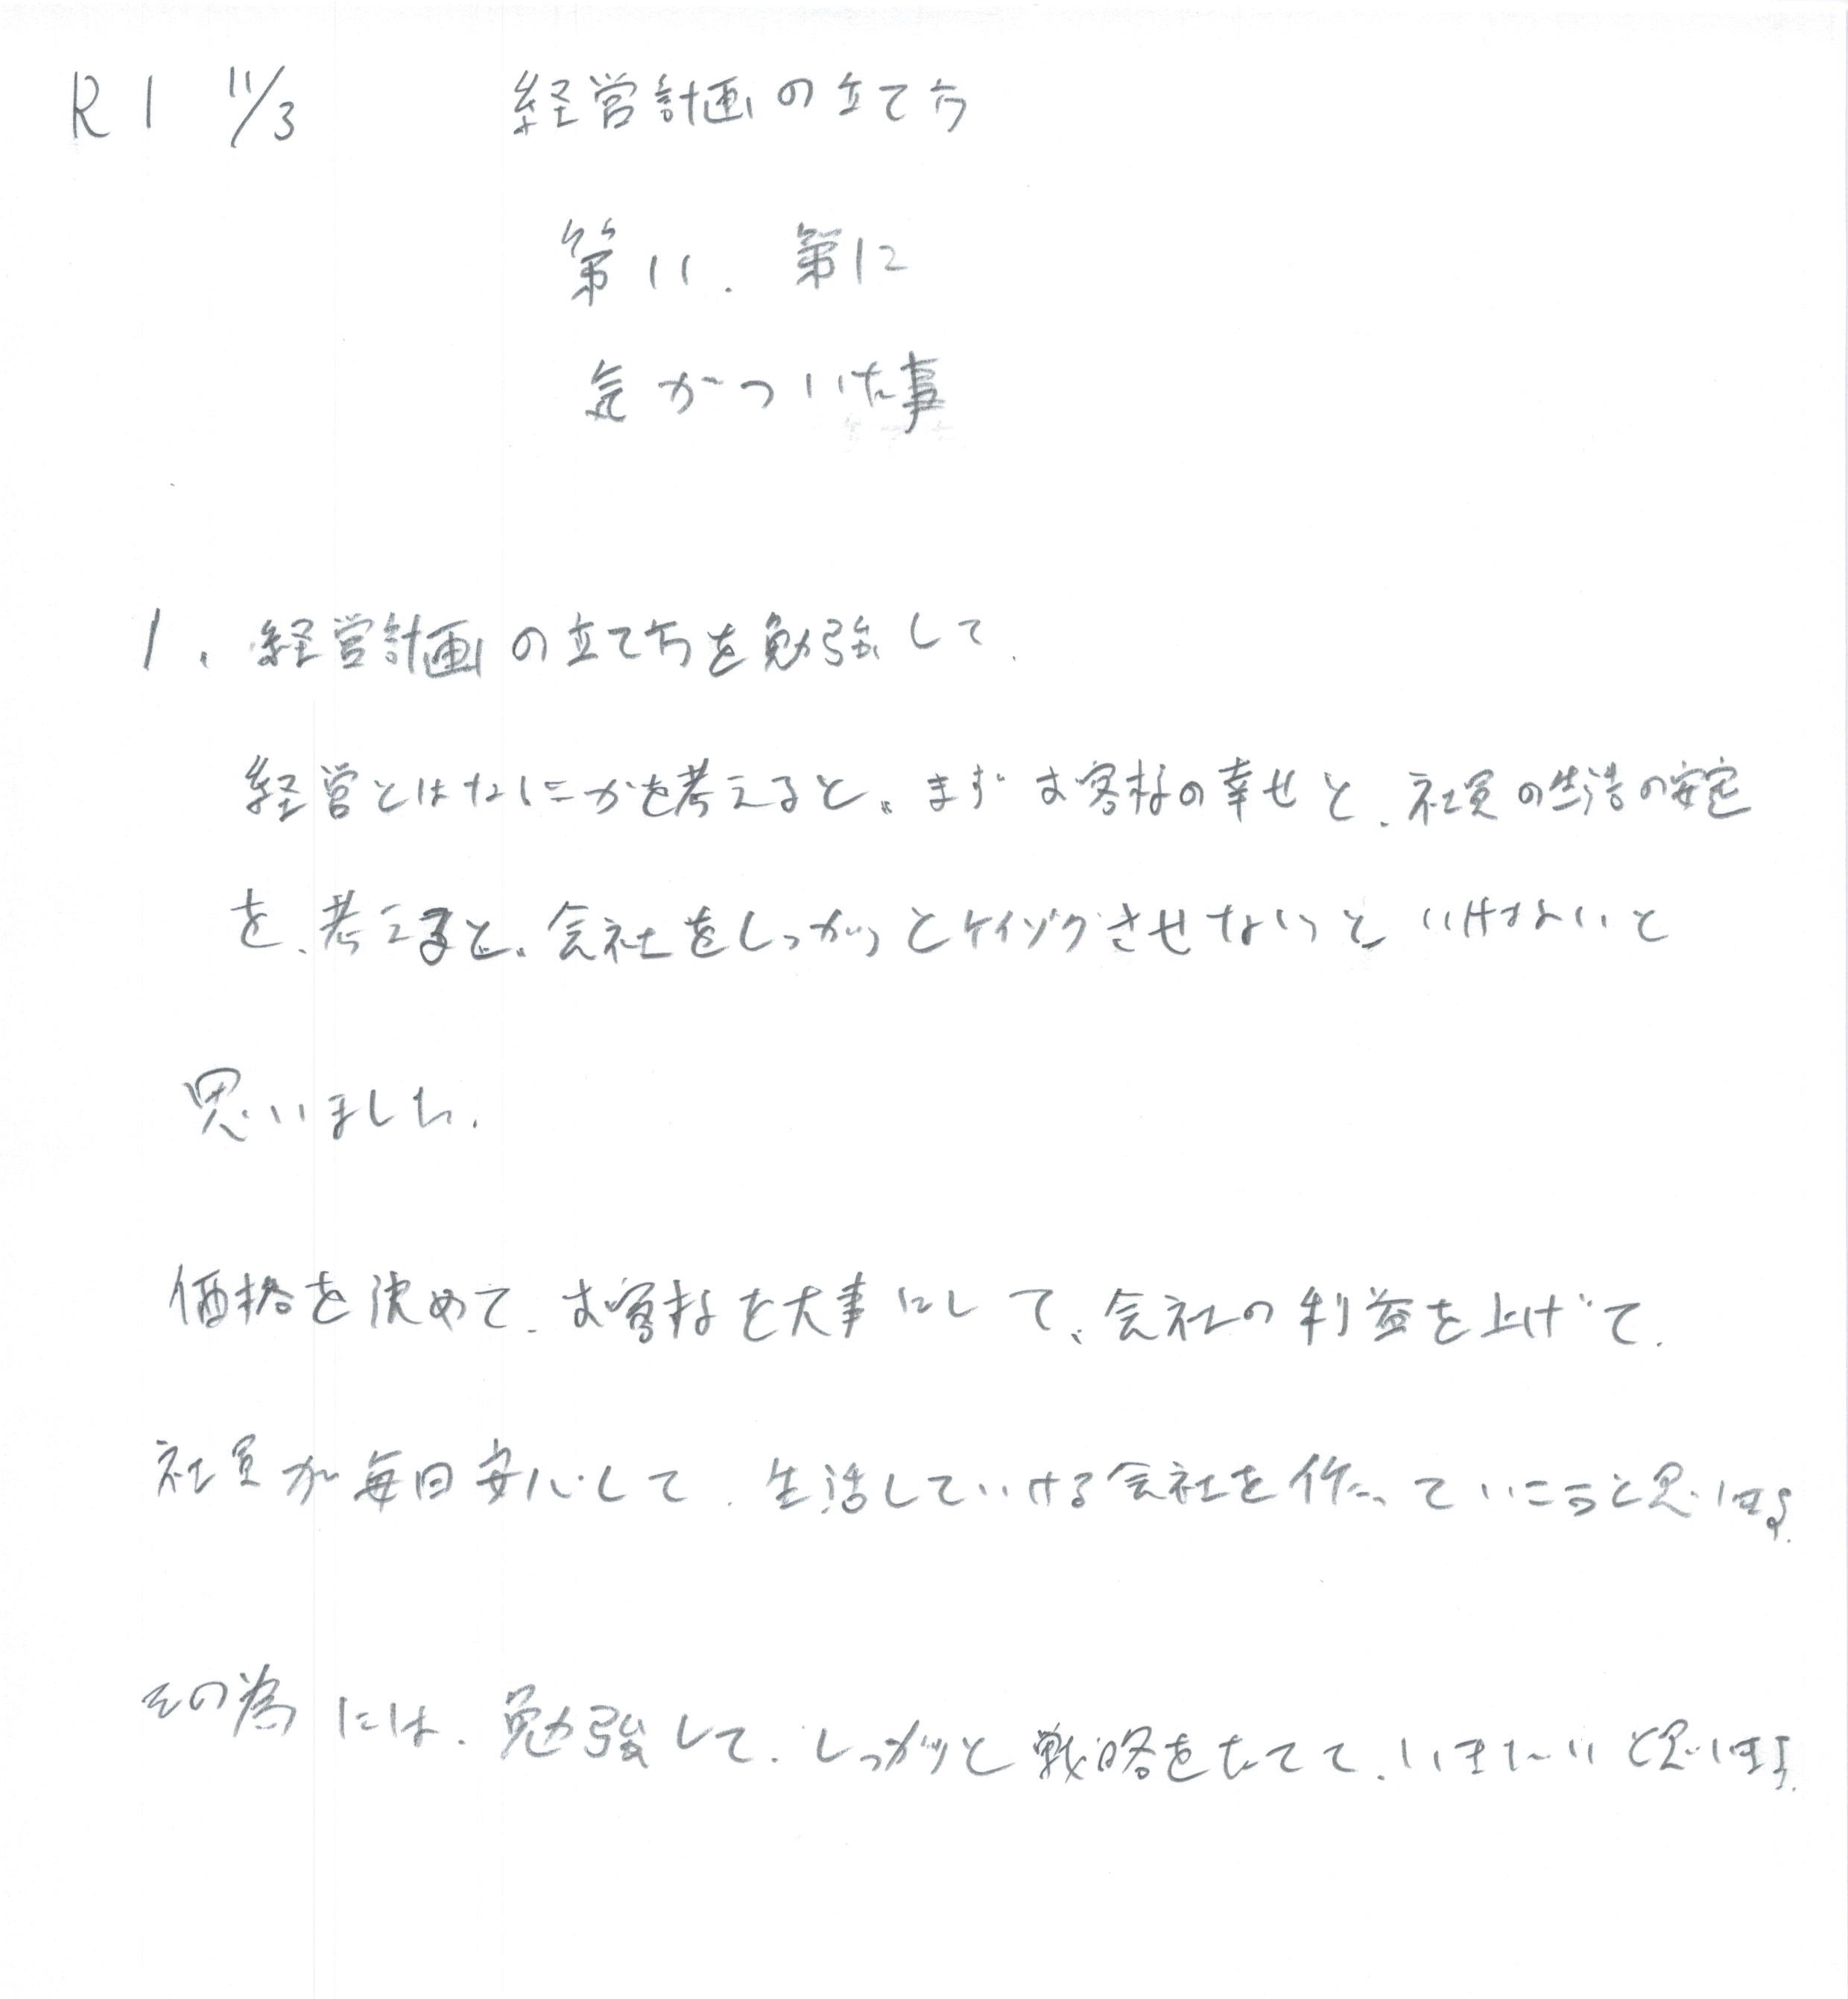 R1 11/3 経営計画の立て方
第11. 第12
気がついた事
1. 経営計画の立て方を勉強して.
経営とはなにかを考えると、まずお客様の幸せと、社員の生活の安定
を、考えると、会社をしっかりとケイゾクさせないといけないと
思いました.
価格を決めて、お客様を大事にして、会社の利益を上げて.
社員が毎日安心して、生活していける会社を作っていこうと思います.
その為には、勉強して、しっかりと戦略をたてて、いきたいと思います.